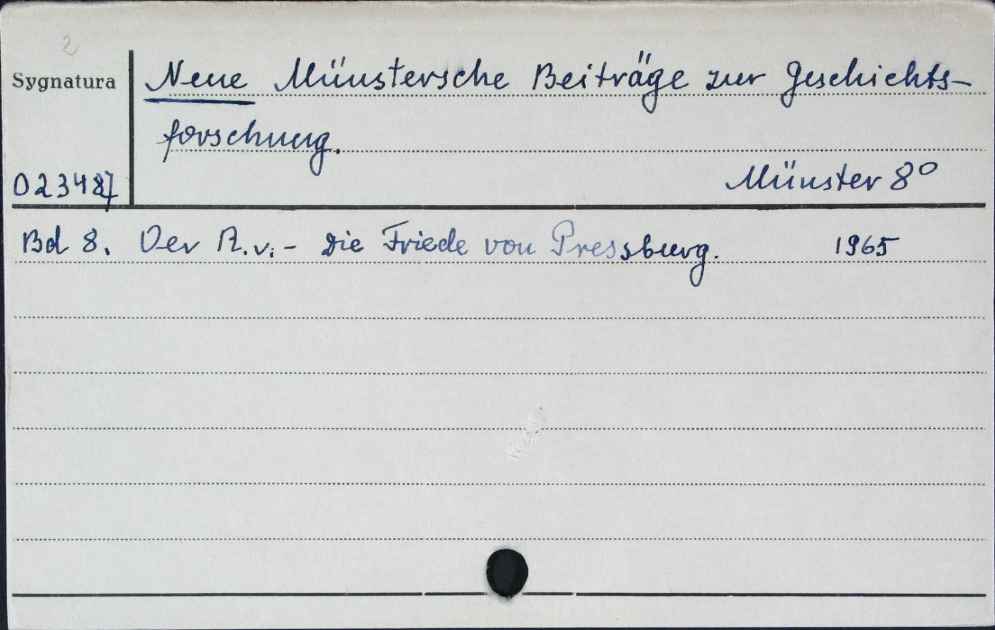 2
Sygnatura
Neue Münstersche Beiträge zur Geschichts-
forschung.
Münster 8°
023487
Bd 8. Oer R.v. - Die Friede von Pressburg. 1965